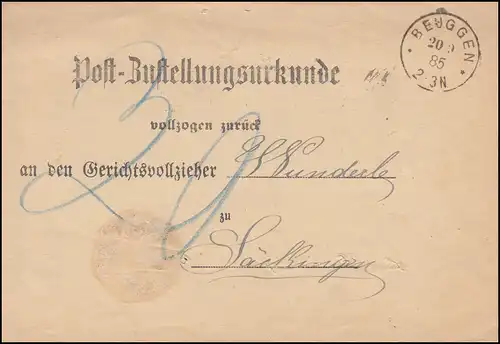 BEUGGEN
20 9
85
2-3N
Post-Zustellungsurkunde
vollzogen zurück
an den Gerichtsvollzieher Wunderle
zu
Säckingen
30